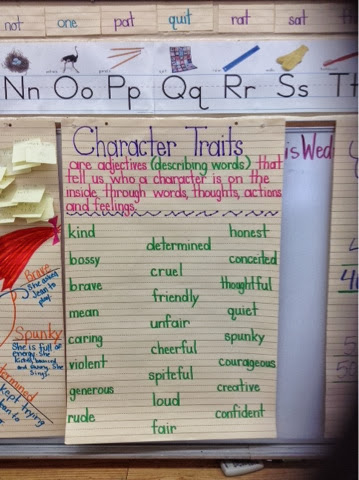 not one pat quit rat sat
Nn Oo Pp Qq Rr Ss T
Character Traits
are adjectives (describing words) that
tell us who a character is on the
inside, through words, thoughts, actions
and feelings.
kind
bossy
brave
mean
caring
violent
generous
rude
determined
cruel
friendly
unfair
cheerful
spiteful
loud
fair
honest
conceited
thoughtful
quiet
spunky
courageous
creative
confident
is Wed
Brave
She asked
Jean to
play.
Spunky
She is full of
energy. She
kicked, bounced
and
sings.
kept trying